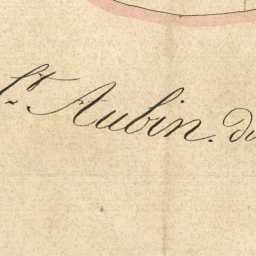 St. Aubin. du